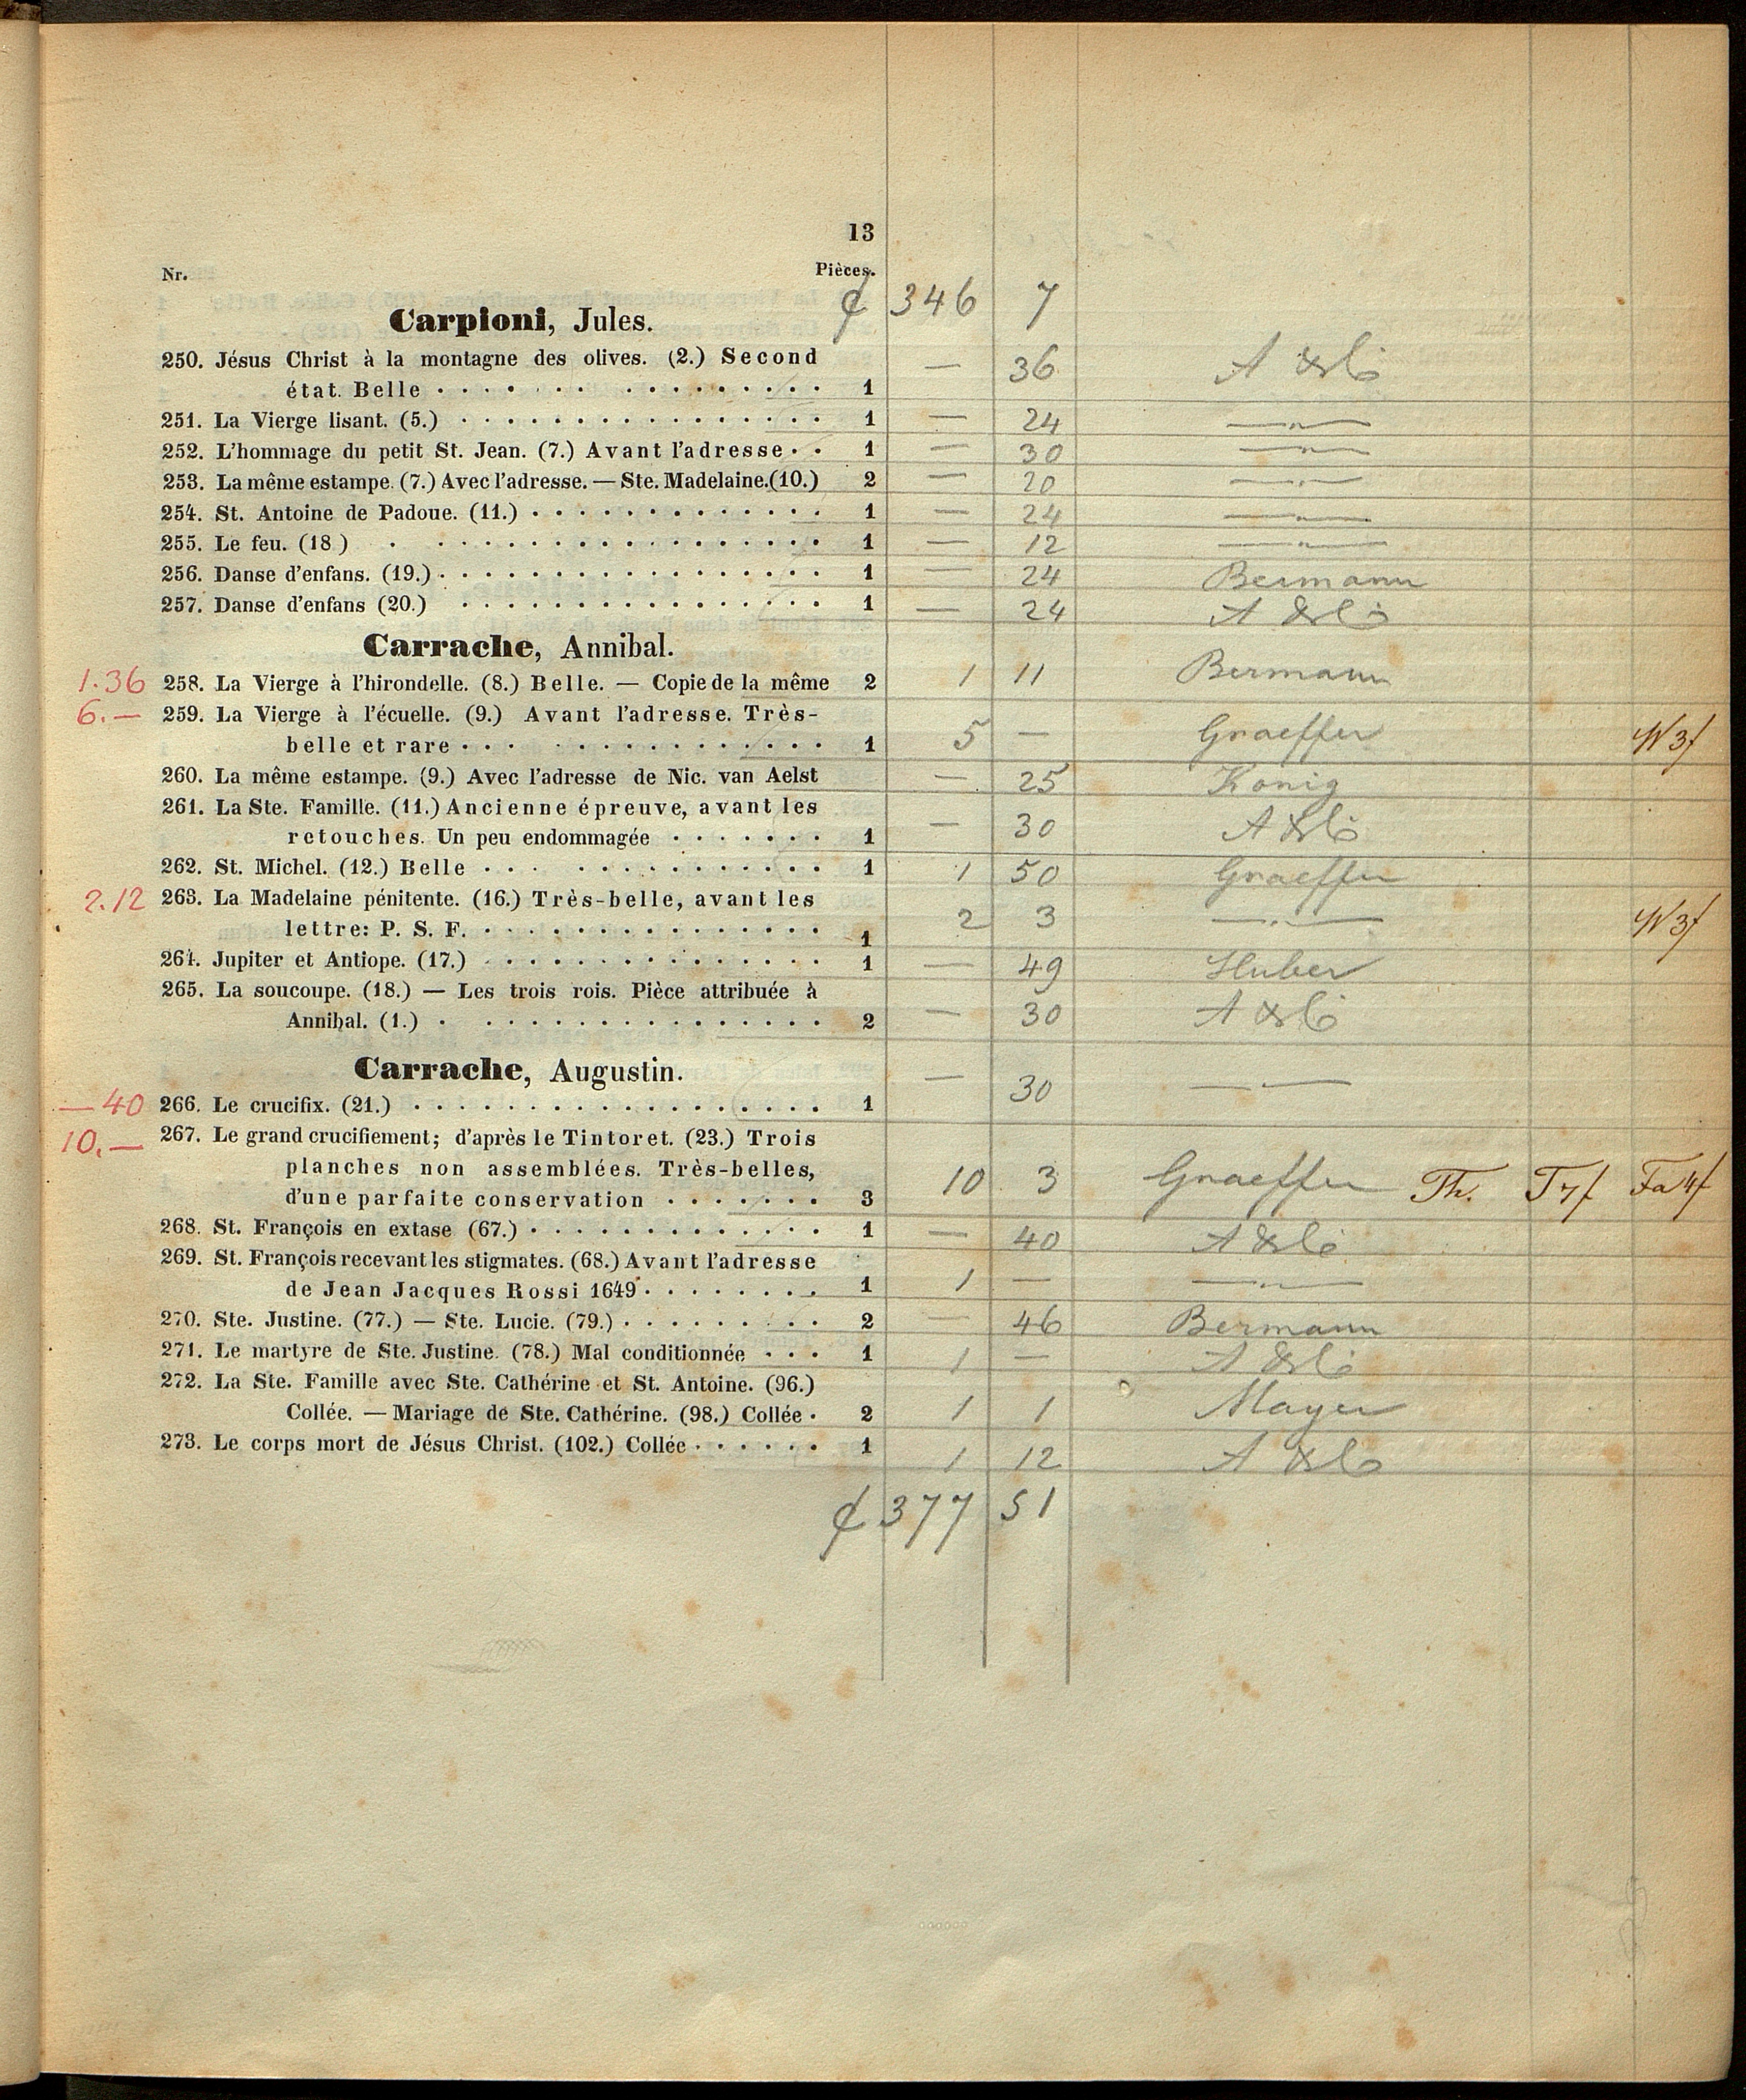 13
Nr. Pièces.
₰ 346 7
Carpioni, Jules.
250. Jésus Christ à la montagne des olives. (2.) Second
état. Belle 1 — 36 A & Co
251. La Vierge lisant. (5.) 1 — 24 — „ —
252. L'hommage du petit St. Jean. (7.) Avant l'adresse 1 — 30 — „ —
253. La même estampe. (7.) Avec l'adresse. — Ste. Madelaine.(10.) 2 — 20 — „ —
254. St. Antoine de Padoue. (11.) 1 — 24 — „ —
255. Le feu. (18) 1 — 12 — „ —
256. Danse d'enfans. (19.) 1 — 24 Bermann
257. Danse d'enfans (20.) 1 — 24 A & Co
Carrache, Annibal.
1.36 258. La Vierge à l'hirondelle. (8.) Belle. — Copie de la même 2 1 11 Bermann
6.— 259. La Vierge à l'écuelle. (9.) Avant l'adresse. Très-
belle et rare 1 5 — Graeffer W 3f
260. La même estampe. (9.) Avec l'adresse de Nic. van Aelst — 25 König
261. La Ste. Famille. (11.) Ancienne épreuve, avant les
retouches. Un peu endommagée 1 — 30 A & Co
262. St. Michel. (12.) Belle 1 1 50 Graeffer
2.12 263. La Madelaine pénitente. (16.) Très-belle, avant les
lettre: P. S. F. 1 2 3 — „ — W 3f
264. Jupiter et Antiope. (17.) 1 — 49 Huber
265. La soucoupe. (18.) — Les trois rois. Pièce attribuée à
Annibal. (1.) 2 — 30 A & Co
Carrache, Augustin.
—40 266. Le crucifix. (21.) 1 — 30 — „ —
10.— 267. Le grand crucifiement; d'après le Tintoret. (23.) Trois
planches non assemblées. Très-belles,
d'une parfaite conservation 3 10 3 Graeffer Th. T 7f Fa 4f
268. St. François en extase (67.) 1 — 40 A & Co
269. St. François recevant les stigmates. (68.) Avant l'adresse
de Jean Jacques Rossi 1649 1 1 — — „ —
270. Ste. Justine. (77.) — Ste. Lucie. (79.) 2 — 46 Bermann
271. Le martyre de Ste. Justine. (78.) Mal conditionnée 1 1 — A & Co
272. La Ste. Famille avec Ste. Cathérine et St. Antoine. (96.)
Collée. — Mariage de Ste. Cathérine. (98.) Collée 2 1 1 Mayer
273. Le corps mort de Jésus Christ. (102.) Collée 1 1 12 A & Co
₰ 377 51